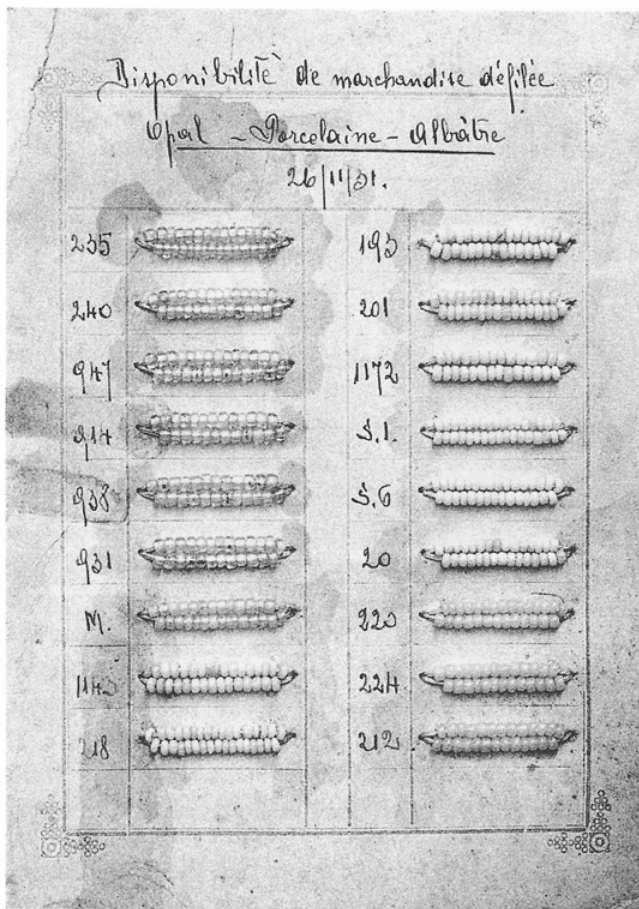 Disponibilité de marchandise défilée
Opal - Porcelaine - Albâtre
26/11/31.
235
240
947
914
938
931
M.
1143
218
193
201
1172
S.1.
S.6
20
220
224
212